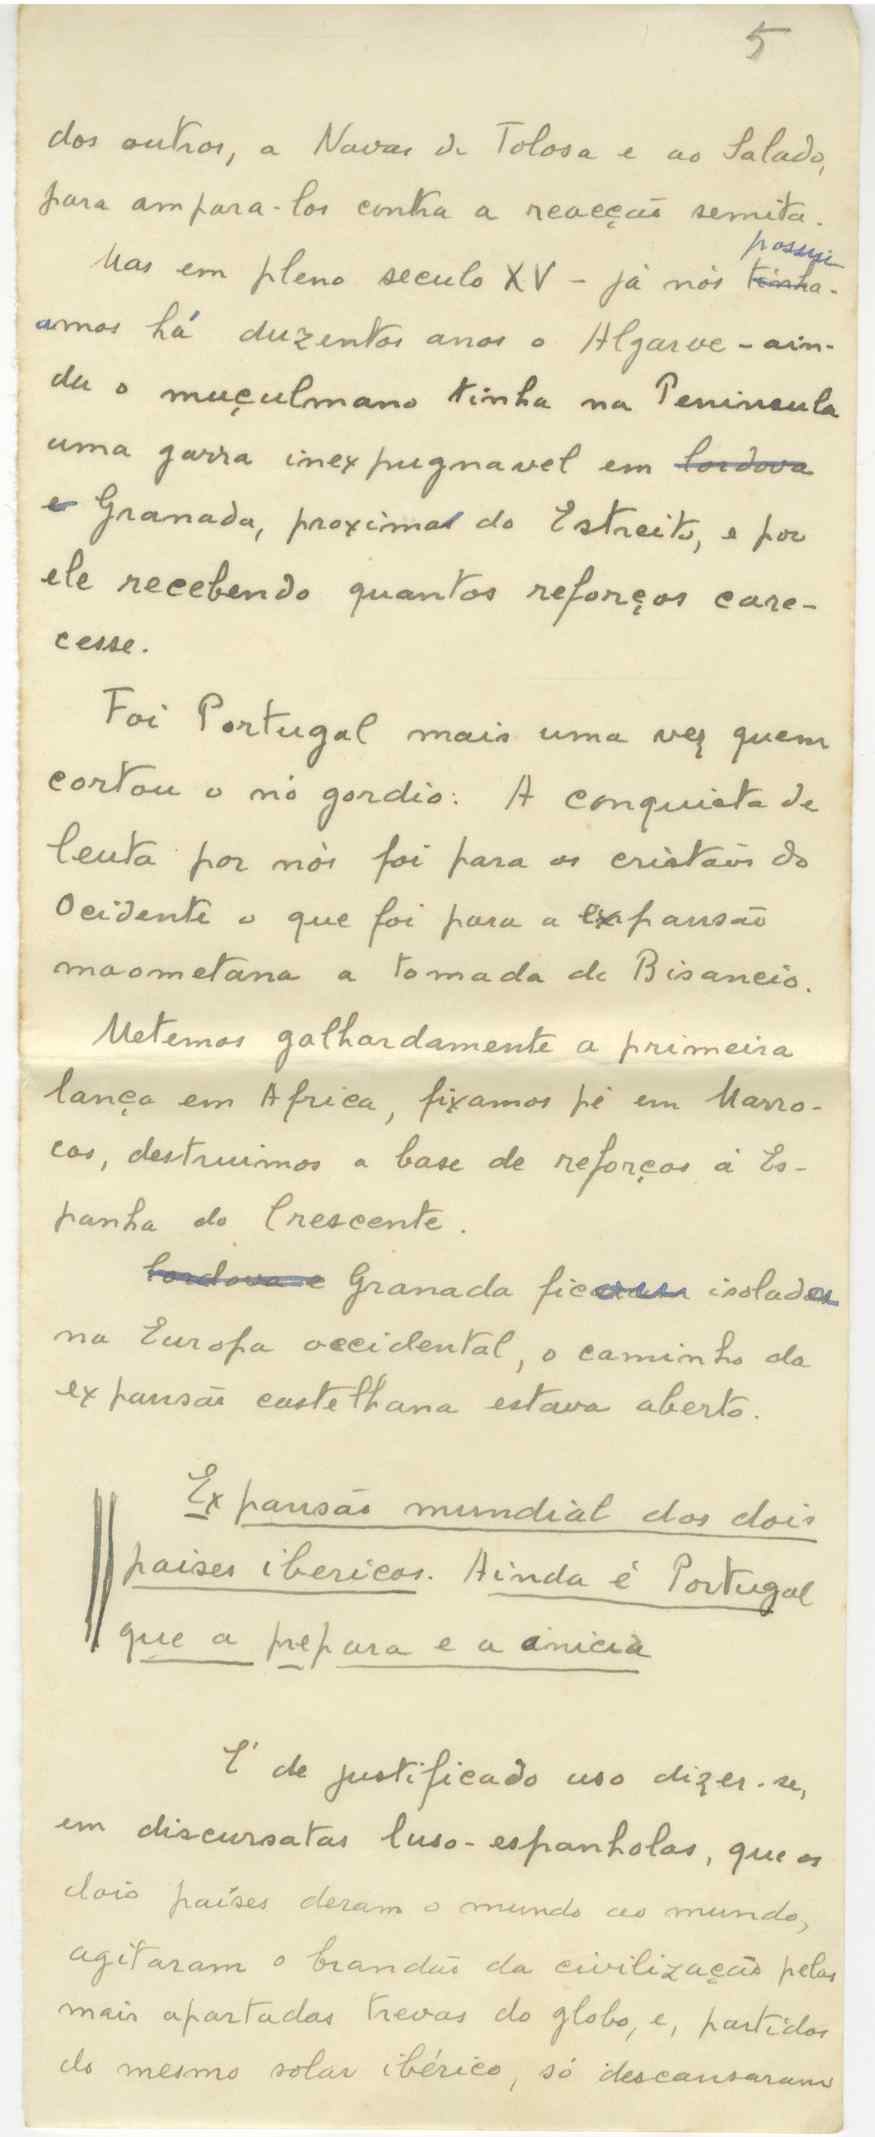 5
dos outros, a Navas de Tolosa e ao Salado,
para ampara-los contra a reacção semita.
possui
Mas em pleno seculo XV - já nós tinha-
amos há duzentos anos o Algarve - ain-
da o muçulmano tinha na Peninsula
uma garra inexpugnavel em Cordova
e Granada, proxima do Estreito, e por
ele recebendo quantos reforços care-
cesse.
Foi Portugal mais uma vez quem
cortou o nó gordio: A conquista de
Ceuta por nós foi para os cristãos do
Ocidente o que foi para a expansão
maometana a tomada de Bisancio.
Metemos galhardamente a primeira
lança em Africa, fixamos pé em Marro-
cos, destruimos a base de reforços á Es-
panha do Crescente.
Cordova e Granada ficaram isolados
na Europa occidental, o caminho da
expansão castelhana estava aberto.
Expansão mundial dos dois
paises ibericos. Ainda é Portugal
que a prepara e a inicia
É de justificado uso dizer-se,
em discursatas luso-espanholas, que os
dois países deram o mundo ao mundo,
agitaram o brandão da civilização pelas
mais apartadas trevas do globo, e, partidos
do mesmo solar ibérico, só descansaram